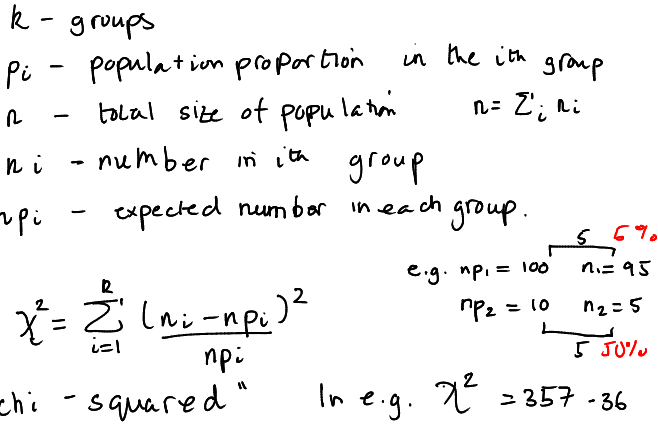 k - groups
pi - population proportion in the ith group
n - total size of population n = Σi ni
ni - number in ith group
npi - expected number in each group.
5 5%
e.g. np1 = 100 n1 = 95
np2 = 10 n2 = 5
5 50%
χ² = Σ k i=1 (ni - npi)² / npi
chi - squared" In e.g. χ² = 357.36